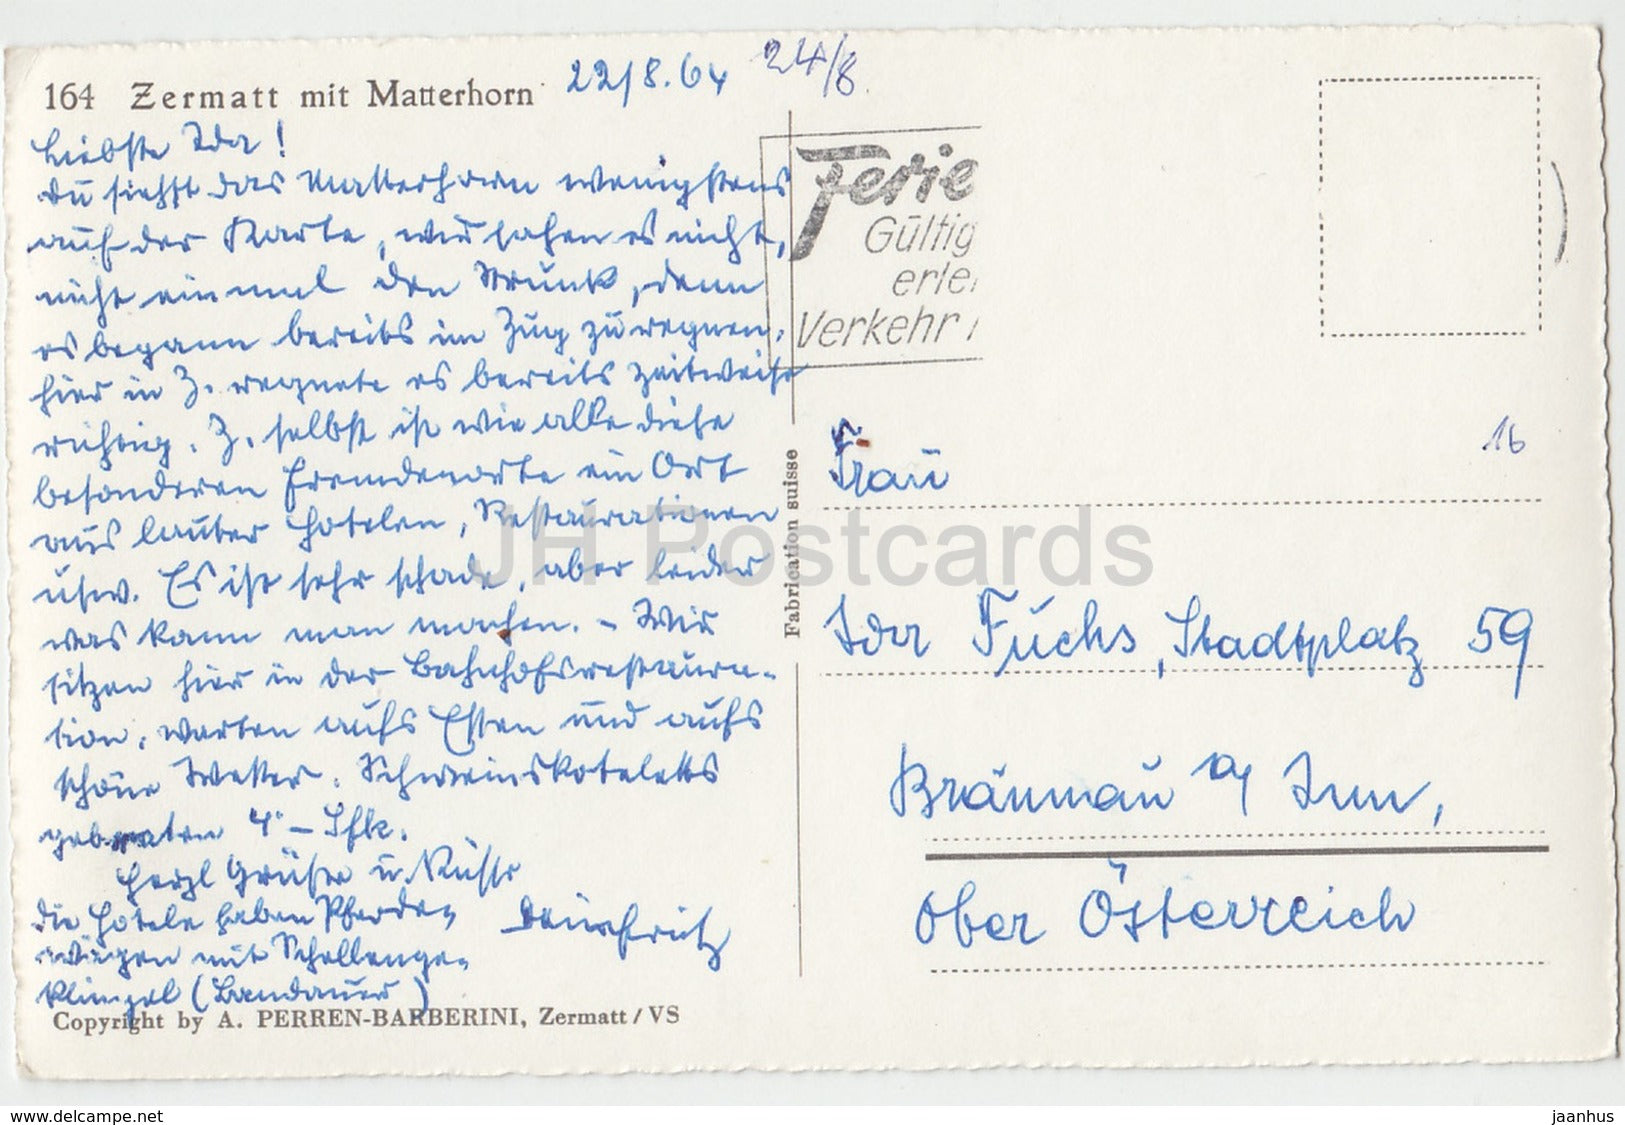 164 Zermatt mit Matterhorn
22/8.64
24/8
Liebste Ida!
Du siehst das Matterhorn wenigstens
auf der Karte, wir sahen es nicht,
nicht einmal den Strunk, denn
es begann bereits im Zug zu regnen,
hier in Z. regnete es bereits zeitweise
richtig. Z. selbst ist wie alle diese
besonderen Fremdenorte ein Ort
aus lauter Hotelen, Restaurationen
usw. Es ist sehr schade, aber leider
was kann man machen. – Wir
sitzen hier in der Bahnhofsrestaura-
tion, warten aufs Essen und aufs
schöne Wetter. Schweinskoteletts
gebraten 4.– Sfk.
Herzl Grüße u. Küsse
Dein Fritz
die Hotele haben Pferde-
wägen mit Schellenge-
klingel (Landauer)
Copyright by A. PERREN-BARBERINI, Zermatt / VS
Fabrication suisse
Ferie
Gültig
erle
Verkehr
16
Frau
Ida Fuchs, Stadtplatz 59
Braunau a/ Inn,
Ober Österreich
JH Postcards
www.delcampe.net
jaanhus